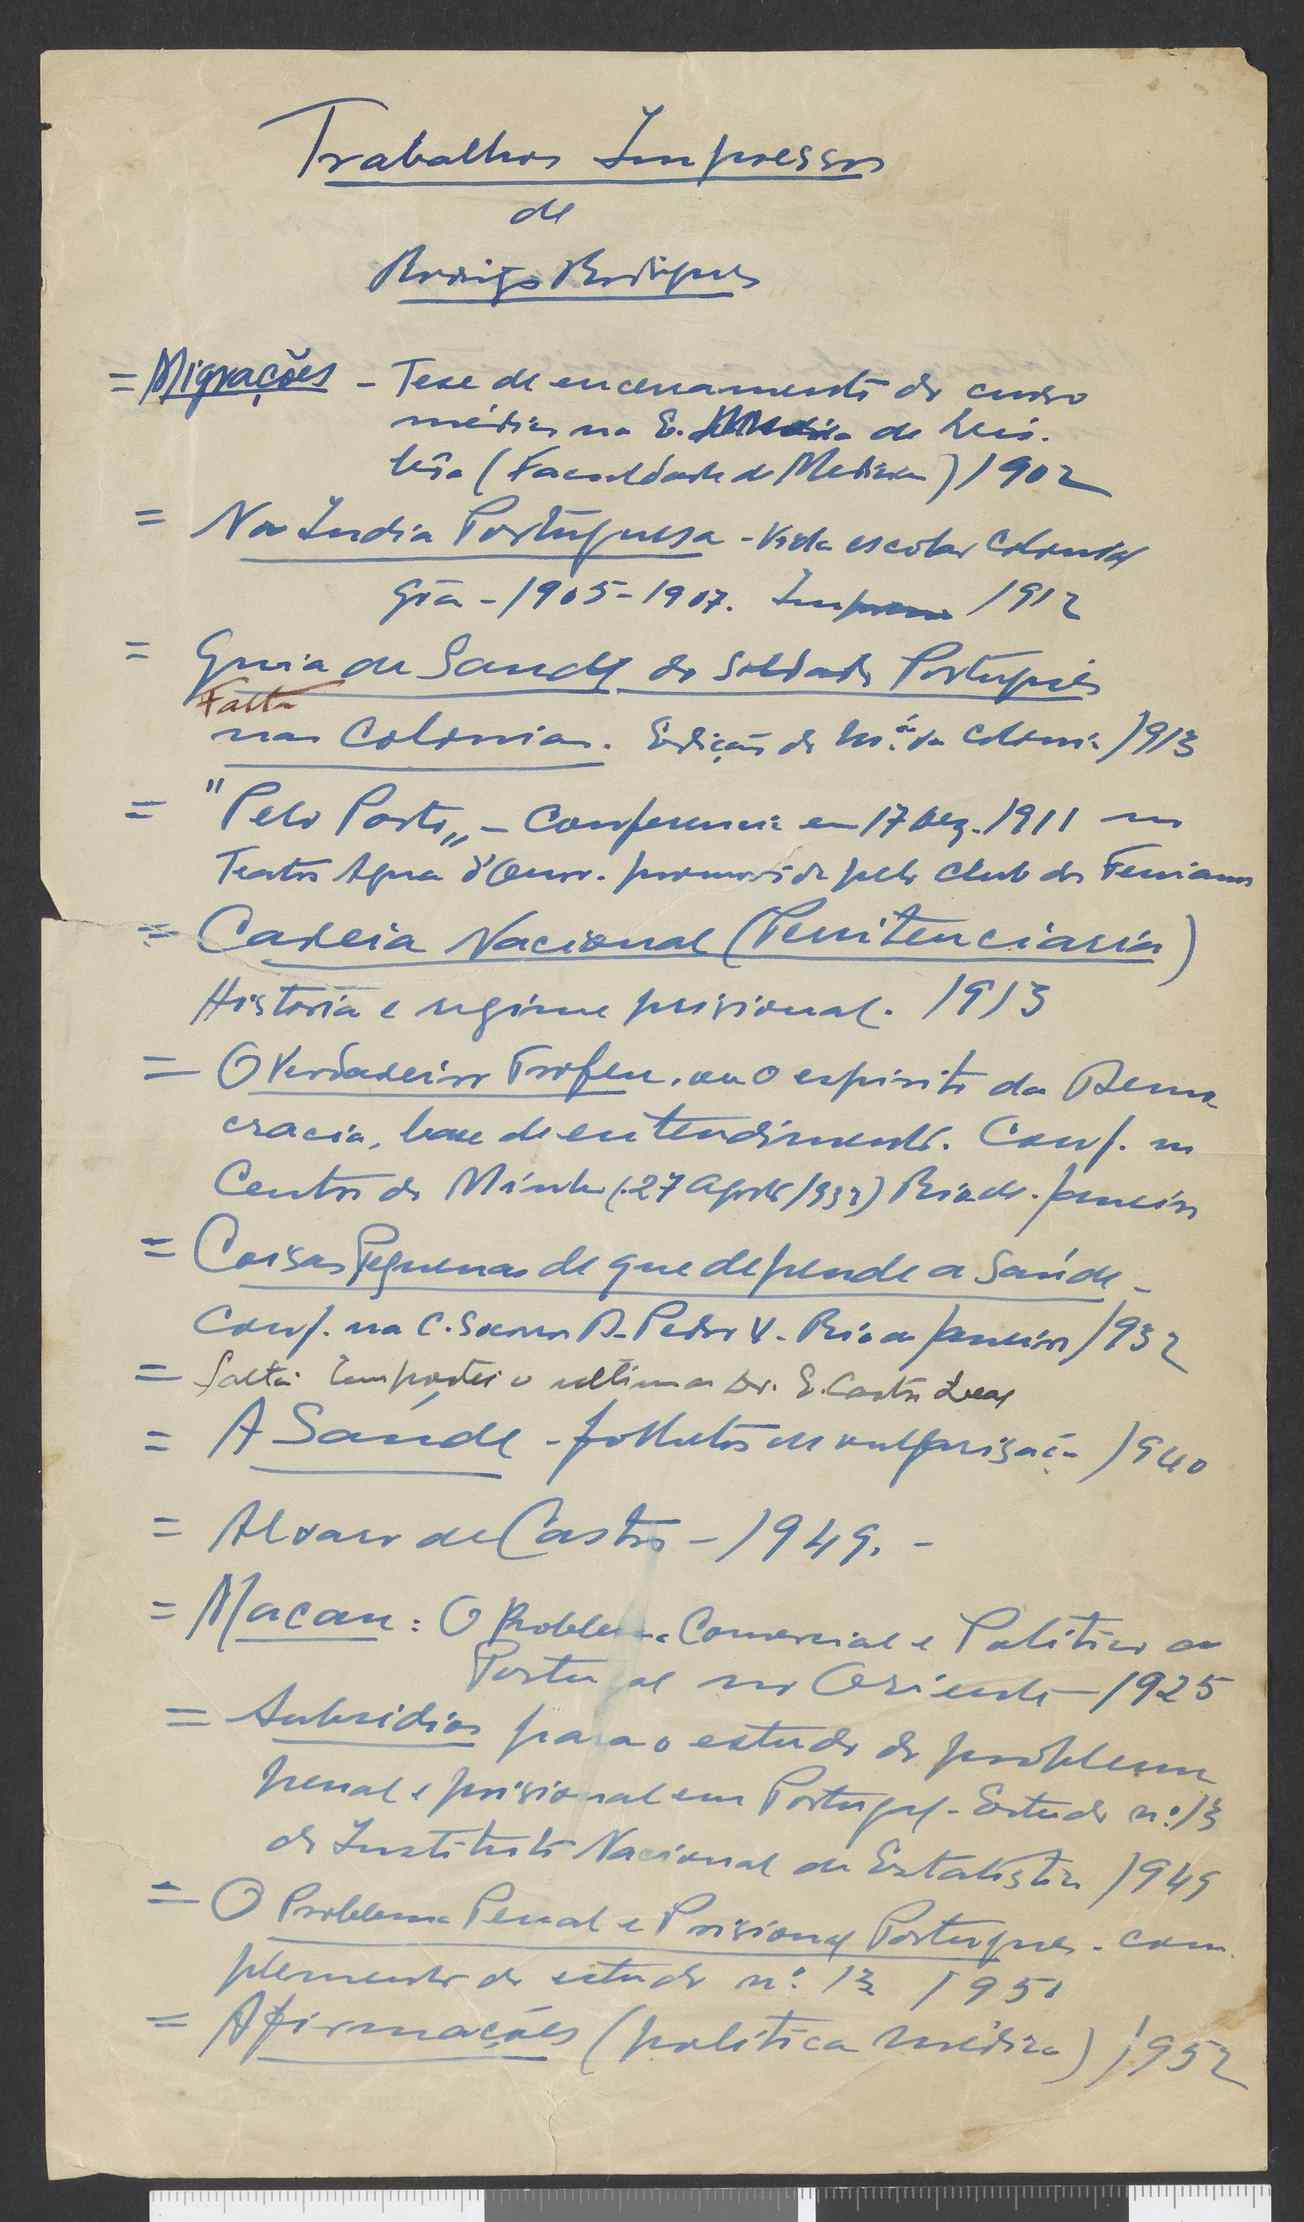 Trabalhos Impressos
de
Rodrigo Rodrigues
= Migrações - Tese de encerramento do curso
médico na E. de Lis.
bôa (Faculdade de Medicina) 1902
= Na India Portuguesa - Vida escolar Colonial
Gôa - 1905 - 1907. Impresso 1912
= Guia de Saude do Soldado Português
Falta
nas Colonias. Edição do M.º da Colonia 1913
= "Pelo Porto„ - Conferencia em 17 Dez. 1911 no
Teatro Agua d'Ouro. promovida pelo Club dos Fenianos
= Cadeia Nacional (Penitenciaria)
Historia e regime prisional. 1913
= O Verdadeiro Trofeu, ou o espirito da Demo
cracia, base de entendimento. Conf. no
Centro do Minho (27 Agosto 1933) Rio de Janeiro
= Coisas Pequenas de que depende a Saúde -
Conf. na C. Socorro D. Pedro V. Rio de Janeiro 1932
= falta emprestei o ultimo ao Dr. E. Castro Leal
= A Saúde - folhetos de vulgarisação 1940
= Alvaro de Castro - 1949. -
= Macau: O Problema Comercial e Politico de
Portugal no Oriente - 1925
= Subsidios para o estudo do problema
penal e prisional em Portugal - Estudo n.º 13
do Instituto Nacional de Estatistica 1949
= O Problema Penal e Prisional Portugues - com
plemento do estudo n.º 13 1951
= Afirmações (politica médica) 1952